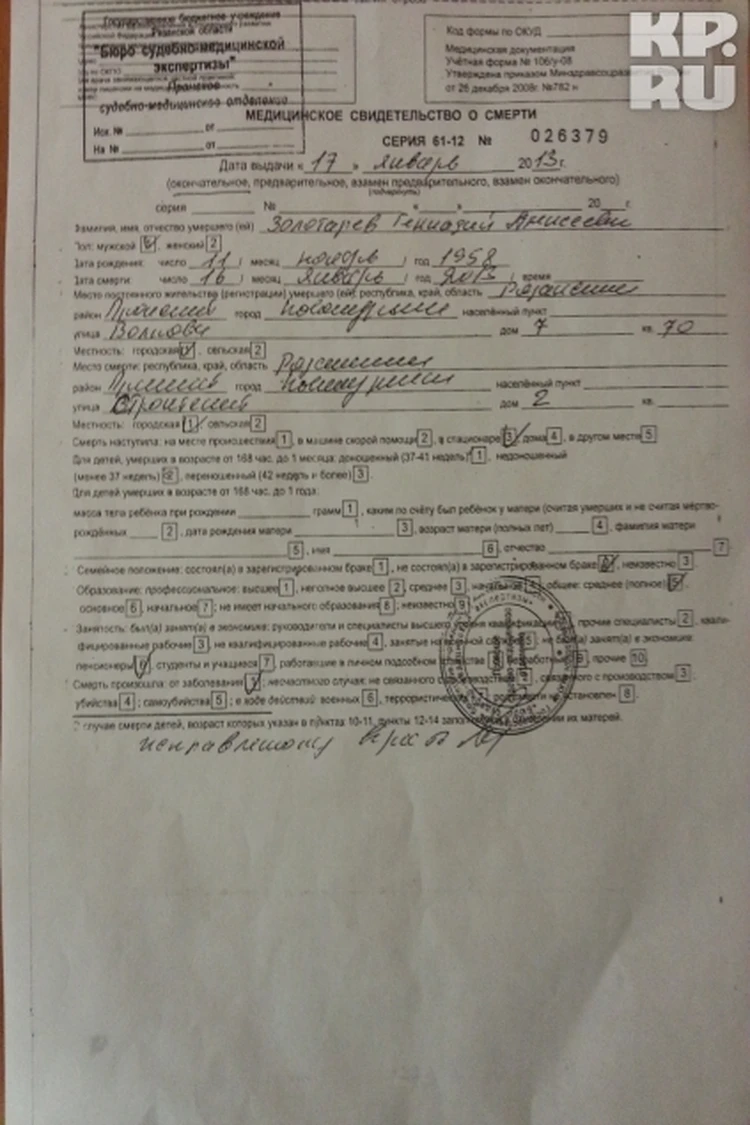 Государственное бюджетное учреждение
Рязанской области
"Бюро судебно-медицинской
экспертизы"
Пронское
судебно-медицинское отделение
Исх. № от
На № от
Код формы по ОКУД
Медицинская документация
Учётная форма № 106/у-08
Утверждена приказом Минздравсоцразвития
от 26 декабря 2008г. №782 н
KP.
RU
МЕДИЦИНСКОЕ СВИДЕТЕЛЬСТВО О СМЕРТИ
СЕРИЯ 61-12 № 026379
Дата выдачи « 17 » январь 2013 г.
(окончательное, предварительное, взамен предварительного, взамен окончательного)
(подчеркнуть)
серия № « » 20 г.
Фамилия, имя, отчество умершего (ей) Золотарев Геннадий
Пол: мужской 1, женский 2
Дата рождения: число 11 месяц ноябрь год 1958
Дата смерти: число 16 месяц январь год 2013 время
Место постоянного жительства (регистрации) умершего (ей): республика, край, область Рязанский
район город населённый пункт
улица дом 7 кв. 70
Местность: городская 1, сельская 2
Место смерти: республика, край, область
район город населённый пункт
улица дом 2 кв.
Местность: городская 1, сельская 2
Смерть наступила: на месте происшествия 1, в машине скорой помощи 2, в стационаре 3, дома 4, в другом месте 5
Для детей, умерших в возрасте от 168 час. до 1 месяца: доношенный (37-41 недель) 1, недоношенный
(менее 37 недель) 2, переношенный (42 недель и более) 3.
Для детей умерших в возрасте от 168 час. до 1 года:
масса тела ребёнка при рождении грамм 1, каким по счёту был ребёнок у матери (считая умерших и не считая мёртво-
рождённых 2, дата рождения матери 3, возраст матери (полных лет) 4, фамилия матери
5, имя 6, отчество 7
Семейное положение: состоял(а) в зарегистрированном браке 1, не состоял(а) в зарегистрированном браке 2, неизвестно 3.
Образование: профессиональное: высшее 1, неполное высшее 2, среднее 3, начальное 4; общее: среднее (полное) 5,
основное 6, начальное 7; не имеет начального образования 8; неизвестно 9.
Занятость: был(а) занят(а) в экономике: руководители и специалисты высшего уровня квалификации 1, прочие специалисты 2, квали-
фицированные рабочие 3, не квалифицированные рабочие 4, занятые на военной службе 5; не был(а) занят(а) в экономике:
пенсионеры 6, студенты и учащиеся 7, работавшие в личном подсобном хозяйстве 8, безработные 9, прочие 10.
Смерть произошла: от заболевания 1; несчастного случая: не связанного с производством 2, связанного с производством 3;
убийства 4; самоубийства 5; в ходе действий: военных 6, террористических 7; род смерти не установлен 8.
В случае смерти детей, возраст которых указан в пунктах 10-11, пункты 12-14 заполняются в отношении их матерей.
исправленному